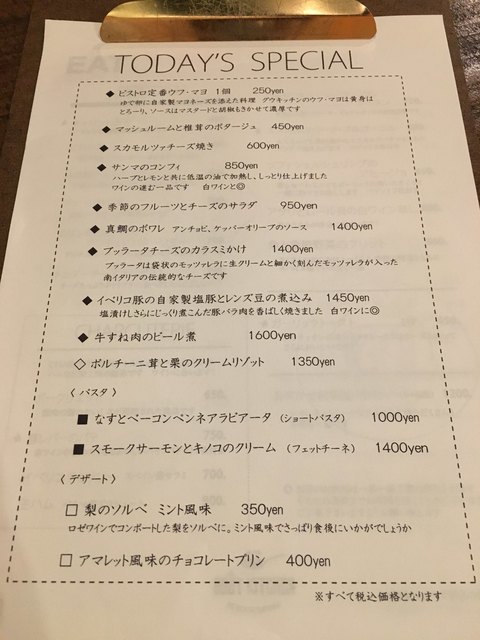 TODAY'S SPECIAL
◆ ビストロ定番ウフ・マヨ 1個 250yen
ゆで卵に自家製マヨネーズを添えた料理 グウキッチンのウフ・マヨは黄身は
とろーり、ソースはマスタードと胡椒もきかせて濃厚です
◆ マッシュルームと椎茸のポタージュ 450yen
◆ スカモルツァチーズ焼き 600yen
◆ サンマのコンフィ 850yen
ハーブとレモンと共に低温の油で加熱し、しっとり仕上げました
ワインの進む一品です 白ワインと◎
◆ 季節のフルーツとチーズのサラダ 950yen
◆ 真鯛のポワレ アンチョビ、ケッパーオリーブのソース 1400yen
◆ ブッラータチーズのカラスミかけ 1400yen
ブッラータは袋状のモッツァレラに生クリームと細かく刻んだモッツァレラが入った
南イタリアの伝統的なチーズです
◆ イベリコ豚の自家製塩豚とレンズ豆の煮込み 1450yen
塩漬けしさらにじっくり煮こんだ豚バラ肉を香ばしく焼きました 白ワインに◎
◆ 牛すね肉のビール煮 1600yen
◇ ポルチーニ茸と栗のクリームリゾット 1350yen
〈 パスタ 〉
■ なすとベーコンペンネアラビアータ (ショートパスタ) 1000yen
■ スモークサーモンとキノコのクリーム (フェットチーネ) 1400yen
〈 デザート 〉
□ 梨のソルベ ミント風味 350yen
ロゼワインでコンポートした梨をソルベに。ミント風味でさっぱり食後にいかがでしょうか
□ アマレット風味のチョコレートプリン 400yen
※すべて税込価格となります